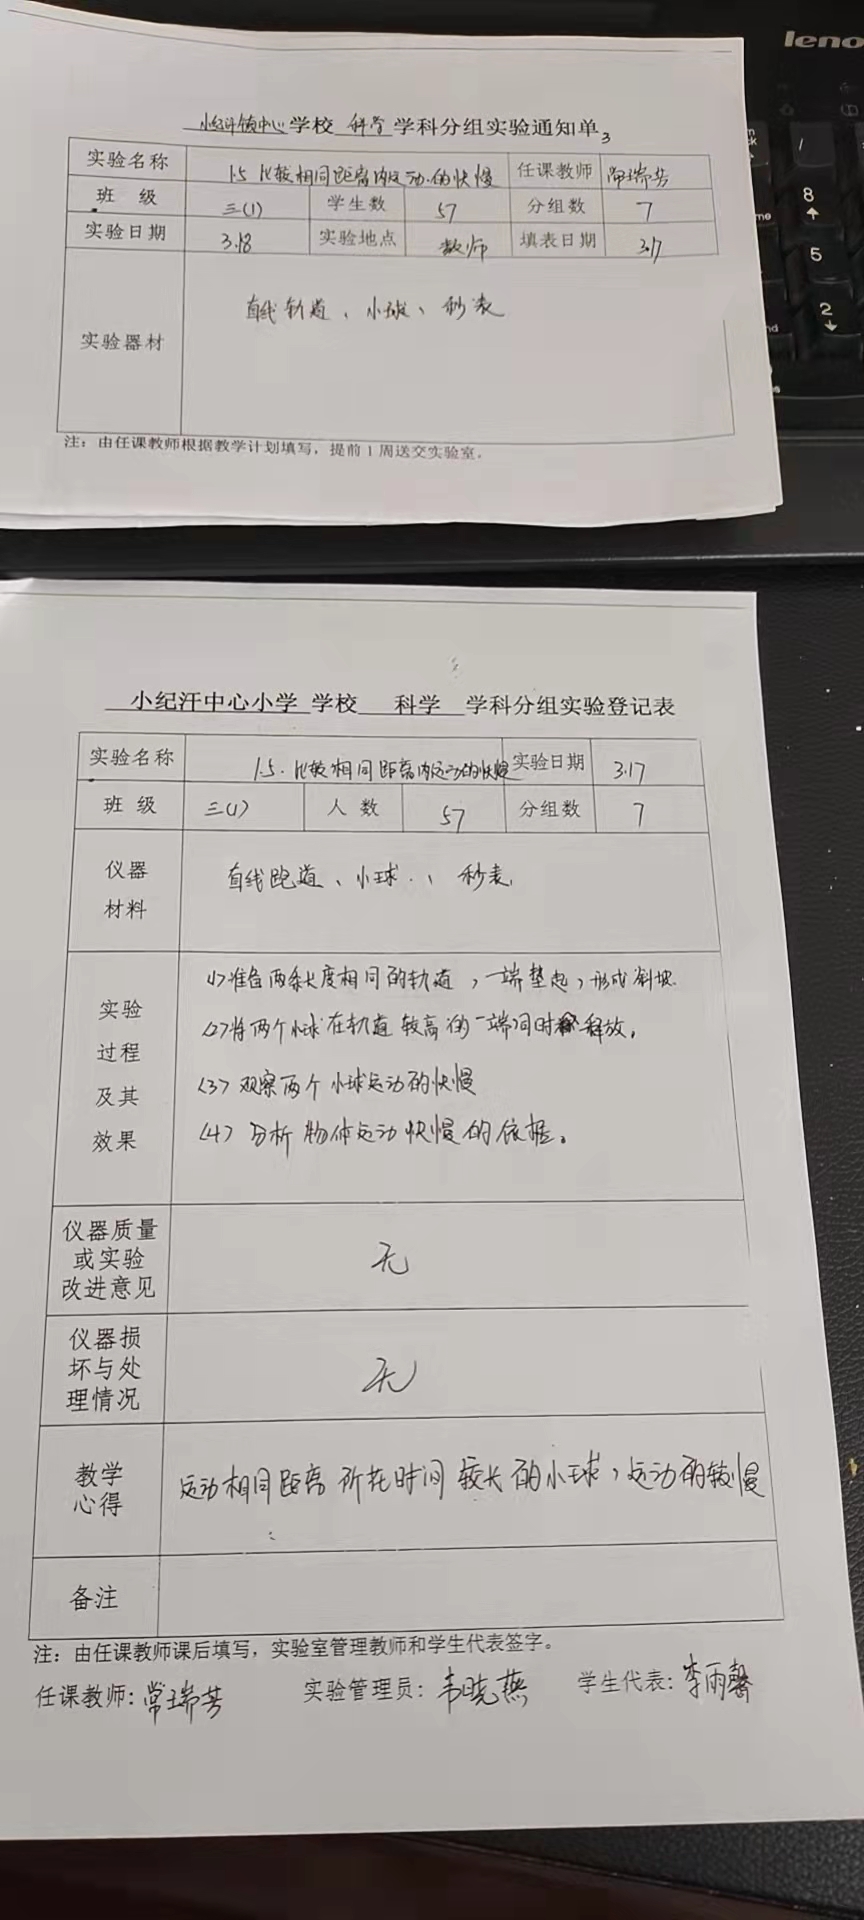 leno
小纪汗镇中心学校 科学 学科分组实验通知单3
实验名称 1.5 比较相同距离内运动的快慢 任课教师 常瑞芳
班 级 三(1) 学生数 57 分组数 7
实验日期 3.18 实验地点 教师 填表日期 3.17
实验器材 直线轨道、小球、秒表
注：由任课教师根据教学计划填写，提前1周送交实验室。
小纪汗中心小学 学校 科学 学科分组实验登记表
实验名称 1.5.比较相同距离内运动的快慢 实验日期 3.17
班 级 三(1) 人 数 57 分组数 7
仪器
材料
直线跑道、小球、秒表.
实验
过程
及其
效果
(1)准备两条长度相同的轨道，一端垫起，形成斜坡.
(2)将两个小球在轨道较高的一端同时释放。
(3)观察两个小球运动的快慢
(4)分析物体运动快慢的依据。
仪器质量
或实验
改进意见
无
仪器损
坏与处
理情况
无
教学
心得
运动相同距离所花时间较长的小球，运动的较慢
备注
注：由任课教师课后填写，实验室管理教师和学生代表签字。
任课教师：常瑞芳 实验管理员：韦晓燕 学生代表：李雨馨
/
8
5
2